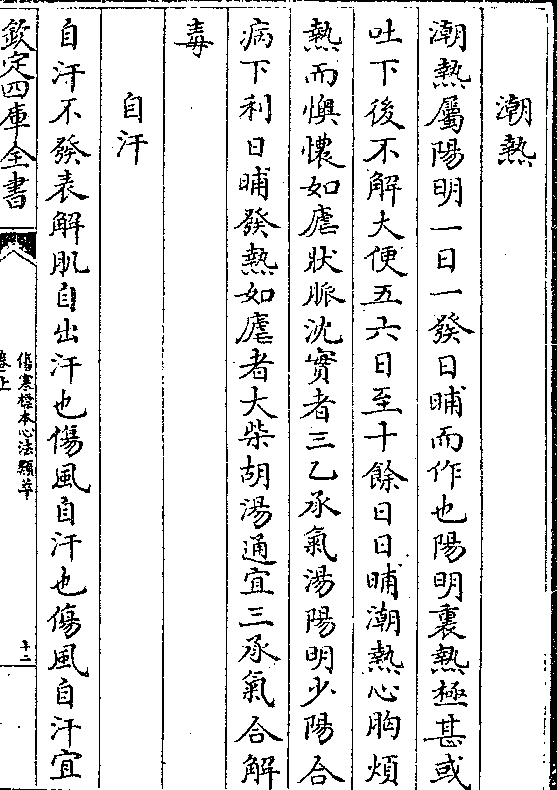 潮熱
潮熱屬陽明一日一發日晡而作也陽明裏熱極甚或
吐下後不解大便五六日至十餘日日晡潮熱心胸煩
熱而懊憹如瘧狀脈沈實者三乙承氣湯陽明少陽合
病下利日晡發熱如瘧者大柴胡湯通宜三承氣合解
毒
自汗
自汗不發表解肌自出汗也傷風自汗也傷風自汗宜
欽定四庫全書
傷寒標本心法類萃
卷上
十二